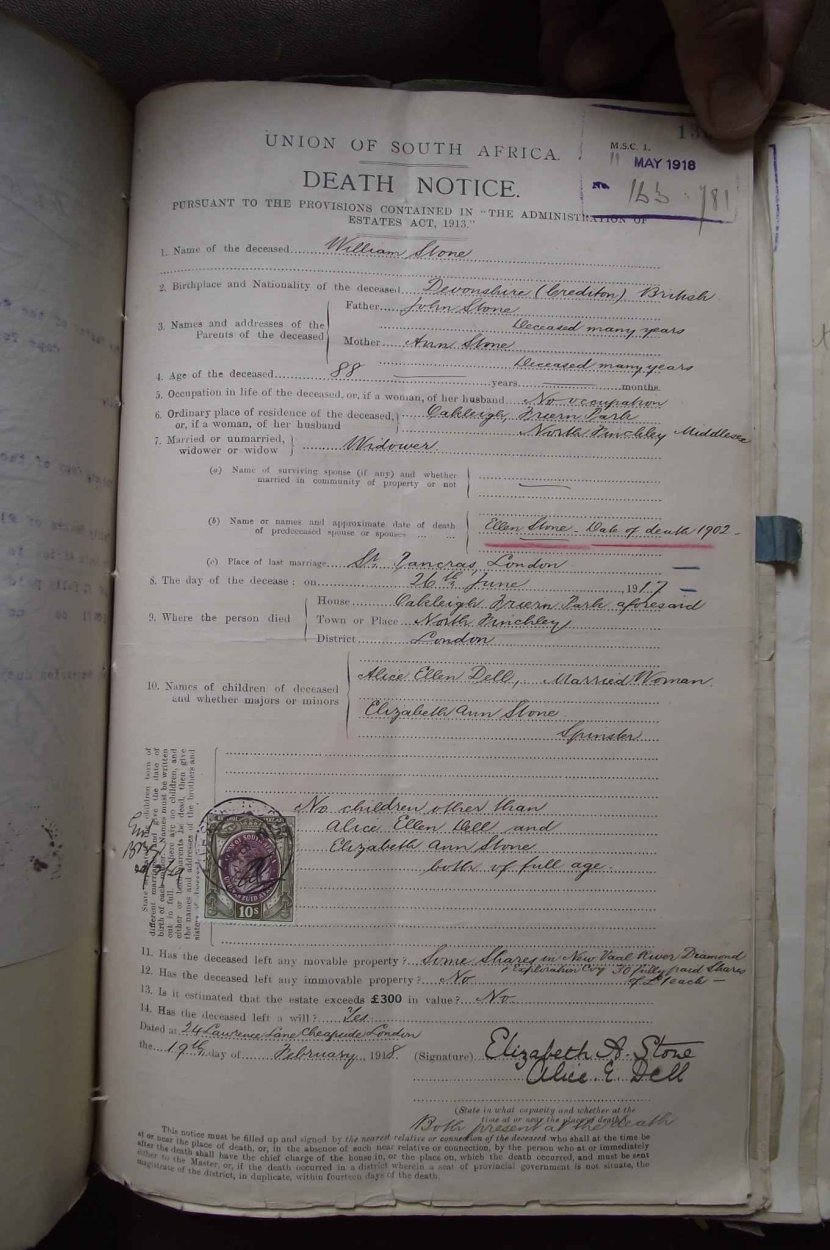 UNION OF SOUTH AFRICA.
M.S.C. 1.
11 MAY 1918
DEATH NOTICE.
PURSUANT TO THE PROVISIONS CONTAINED IN "THE ADMINISTRATION OF
ESTATES ACT, 1913."
1. Name of the deceased William Stone
2. Birthplace and Nationality of the deceased Devonshire (Crediton) British
3. Names and addresses of the Parents of the deceased
Father John Stone
Deceased many years
Mother Ann Stone
Deceased many years
4. Age of the deceased 88 years months.
5. Occupation in life of the deceased, or, if a woman, of her husband No occupation
6. Ordinary place of residence of the deceased, Oakleigh, Friern Park
or, if a woman, of her husband North Finchley Middlesex
7. Married or unmarried,
widower or widow Widower
(a) Name of surviving spouse (if any) and whether
married in community of property or not
(b) Name or names and approximate date of death Ellen Stone - Date of death 1902 -
of predeceased spouse or spouses ... ...
(c) Place of last marriage St. Pancras, London
8. The day of the decease: on 26th June 1917
9. Where the person died
House Oakleigh Friern Park aforesaid
Town or Place North Finchley
District London
10. Names of children of deceased
and whether majors or minors
Alice Ellen Dell, Married Woman
Elizabeth Ann Stone
Spinster
No children other than
Alice Ellen Dell and
Elizabeth Ann Stone
both of full age.
10s
11. Has the deceased left any movable property? Some Shares in New Vaal River Diamond
& Exploration Coy 30 fully paid Shares
of £1 each -
12. Has the deceased left any immovable property? No
13. Is it estimated that the estate exceeds £300 in value? No
14. Has the deceased left a will? Yes
Dated at 24 Lawrence Lane Cheapside London
the 19th day of February, 1918. (Signature) Elizabeth A. Stone
Alice E. Dell
(State in what capacity and whether at the
time at or near the place of death)
Both present at the death
This notice must be filled up and signed by the nearest relative or connection of the deceased who shall at the time be
at or near the place of death, or, in the absence of such near relative or connection, by the person who at or immediately
after the death shall have the chief charge of the house in, or the place on, which the death occurred, and must be sent
either to the Master, or, if the death occurred in a district wherein a seat of provincial government is not situate, the
magistrate of the district, in duplicate, within fourteen days of the death.